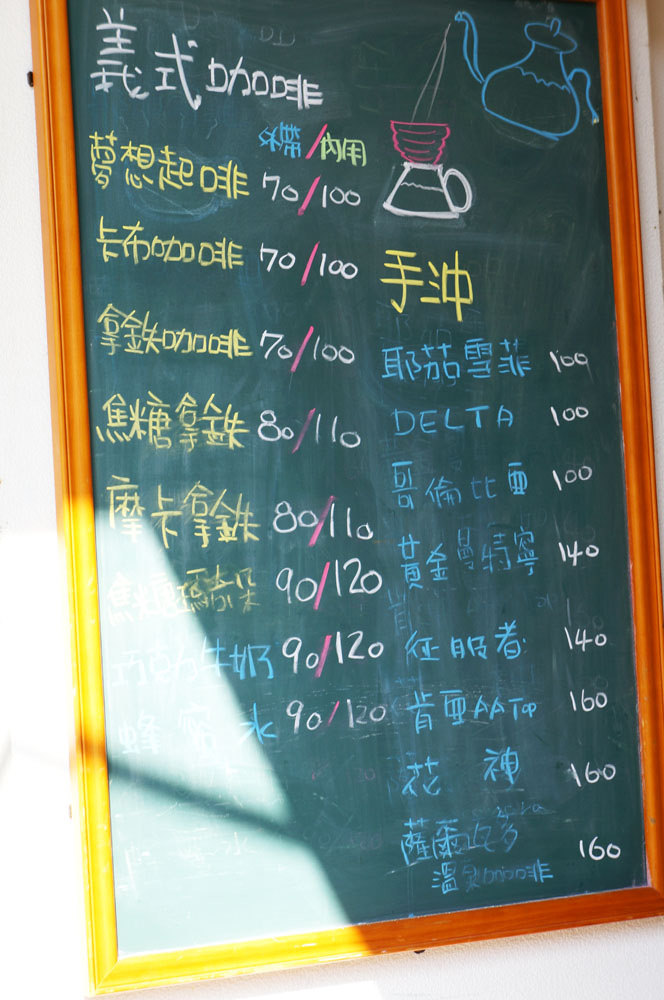 義式咖啡
外帶/內用
夢想起啡 70/100
卡布咖啡 70/100
拿鉄咖啡 70/100
焦糖拿鉄 80/110
摩卡拿鉄 80/110
焦糖瑪奇朵 90/120
巧克力牛奶 90/120
蜂蜜水 90/120
手沖
耶茄雪菲 100
DELTA 100
哥倫比亞 100
黃金曼特寧 140
征服者 140
肯亞AATOP 160
花神 160
薩爾瓦多 160
溫泉咖啡